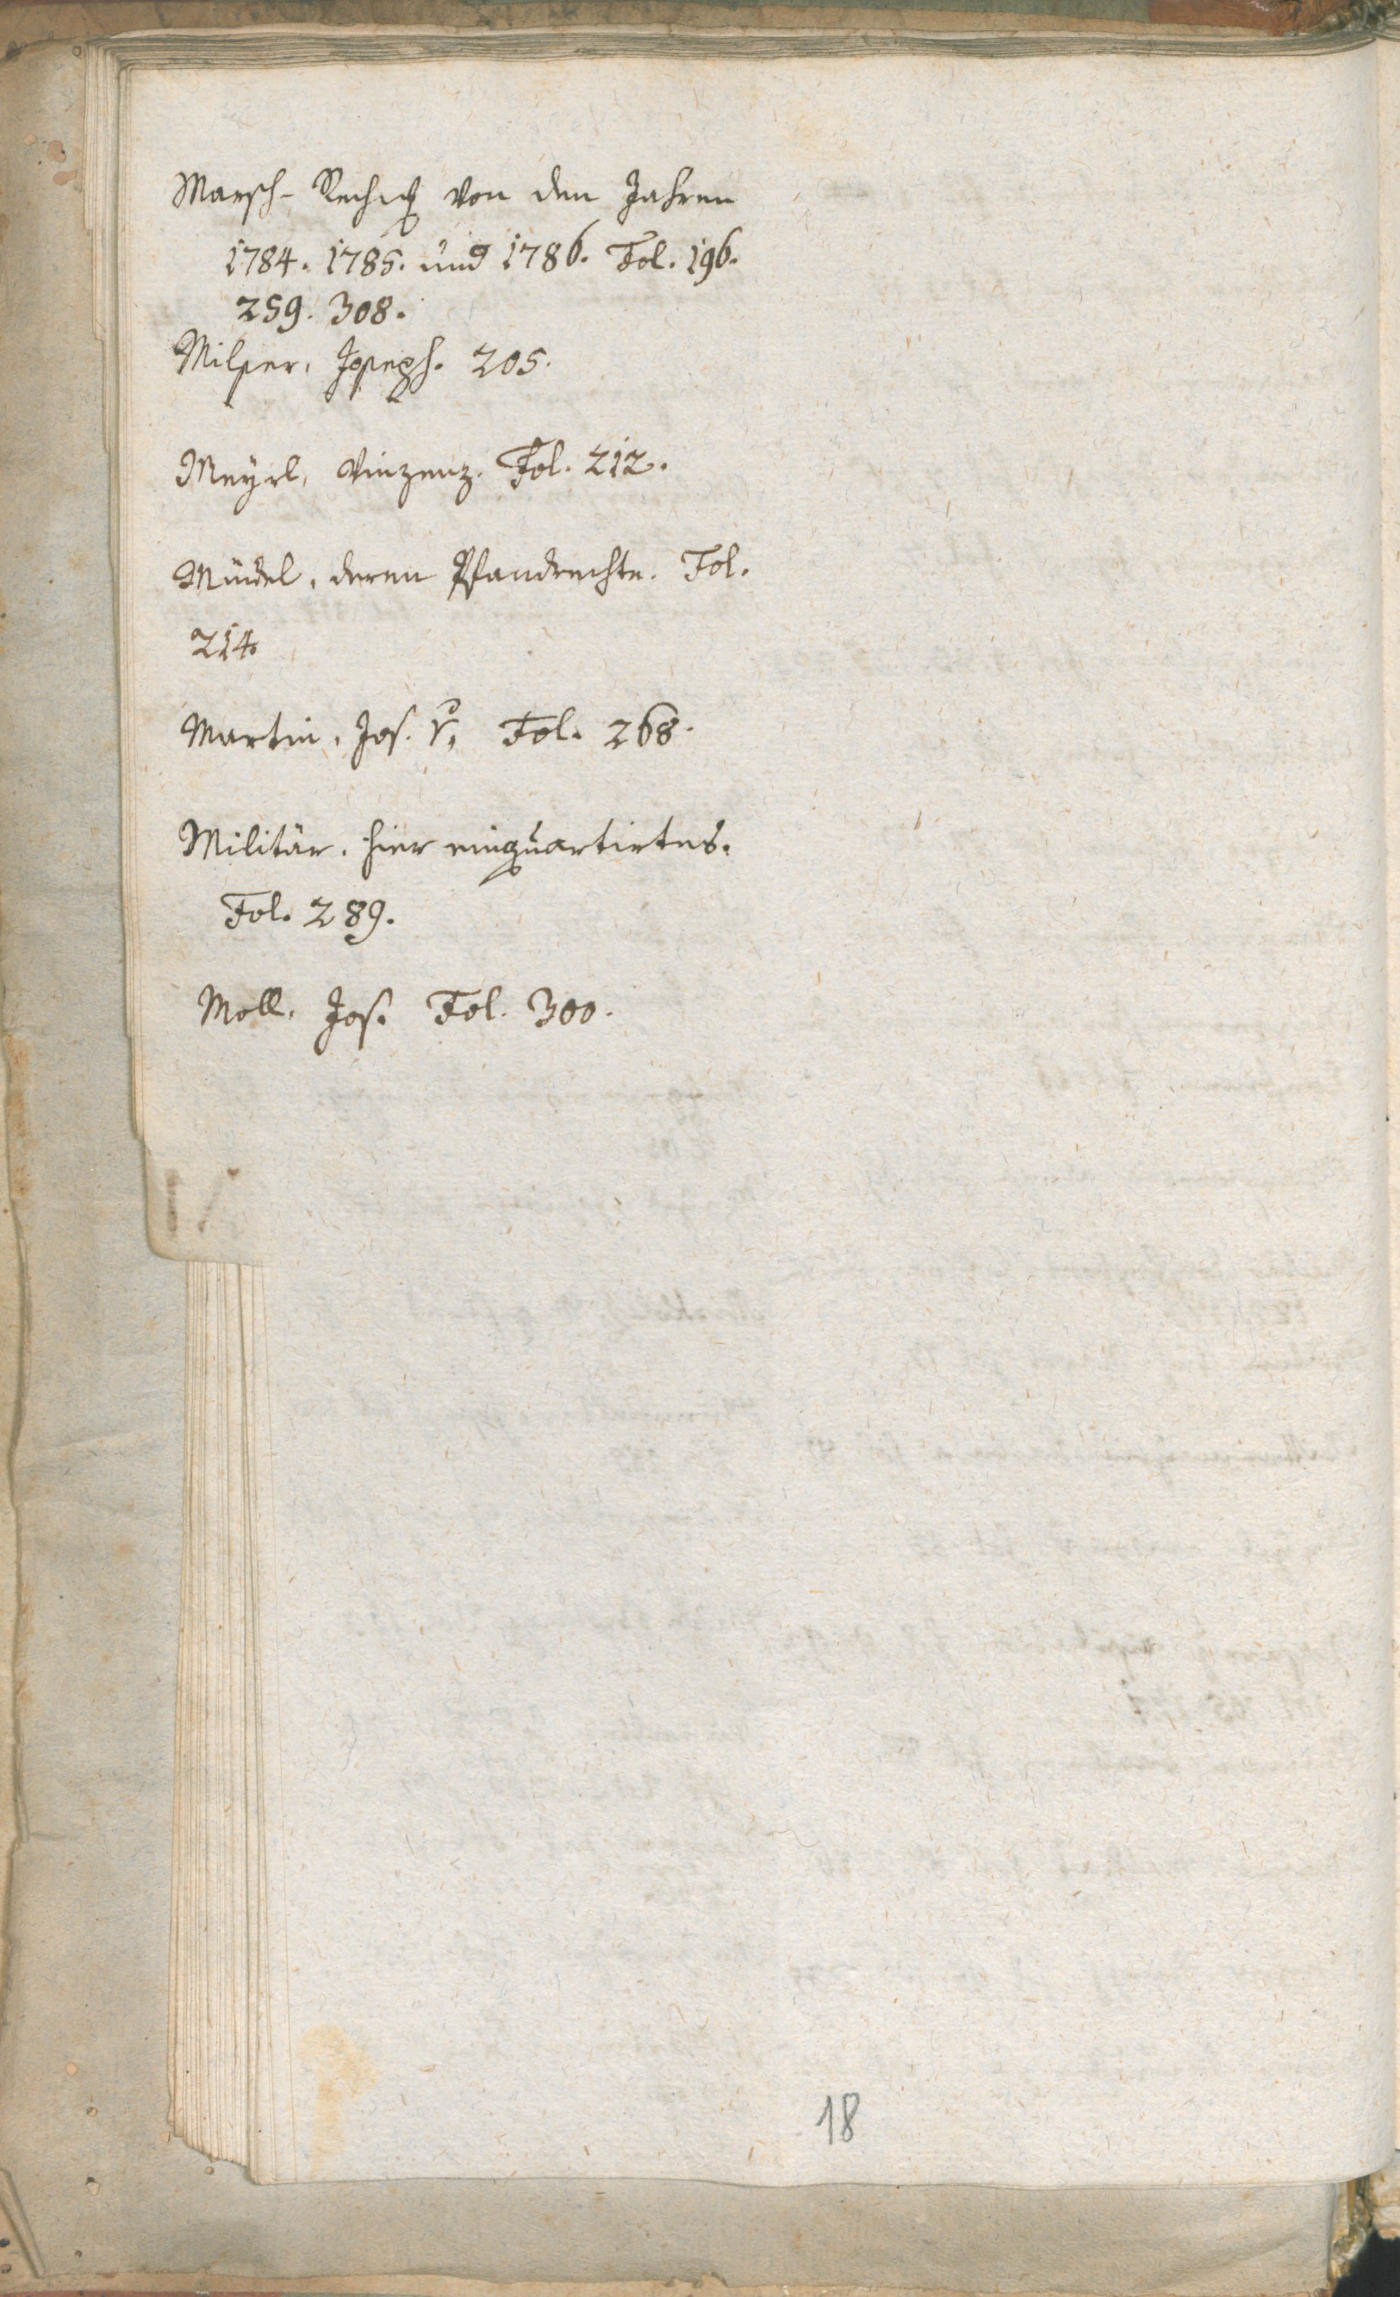 Marsch- Rechng von den Jahren
1784. 1785. und 1786. Fol. 196.
259. 308.
Milser, Joseph. 205.
Meyrl, Vinzenz. Fol. 212.
Mündel, deren Pfandrechte. Fol.
214.
Martin, Jos. Fol. 268.
Militär, hier einquartirtes.
Fol. 289.
Moll, Jos. Fol. 300.
18